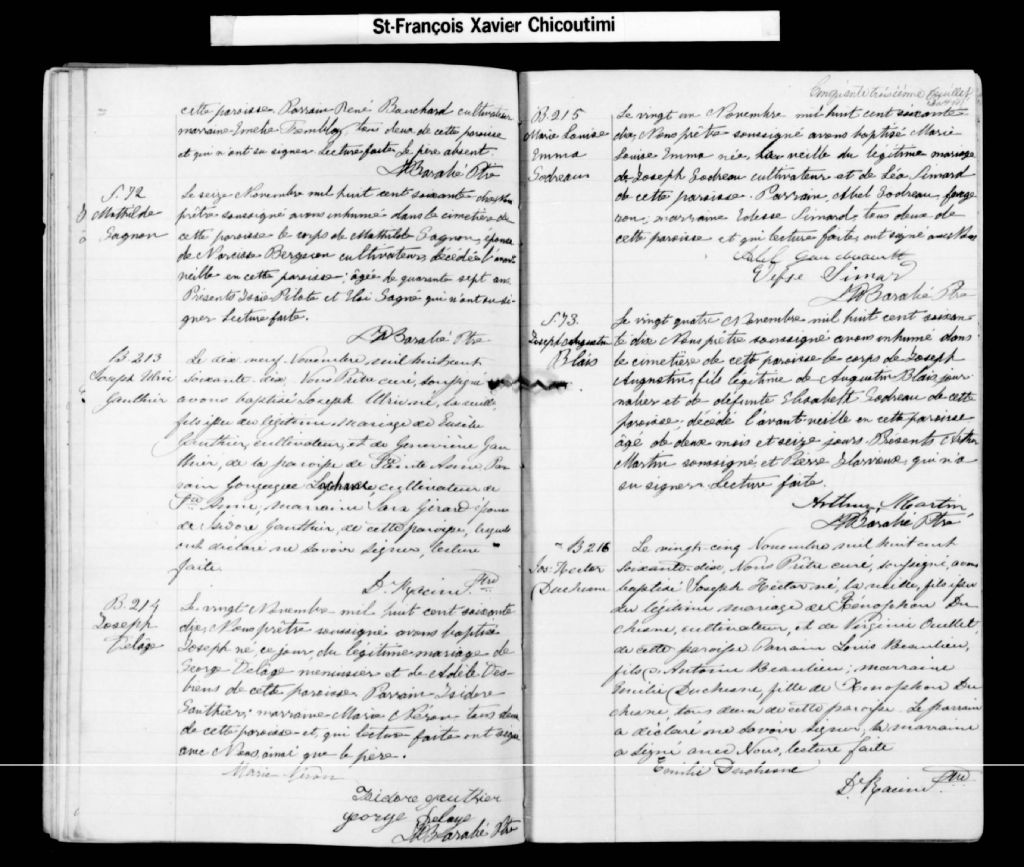 St-François Xavier Chicoutimi
cette paroisse. Parrain René Bouchard cultivateur
marraine Emélie Tremblay, tous deux de cette paroisse
et qui n'ont su signer. Lecture faite. Le père absent.
Ptre
S. 72
Mathilde
Gagnon
Le seize Novembre mil huit cent soixante dix, Nous
prêtre soussigné avons inhumé dans le cimetière de
cette paroisse le corps de Mathilde Gagnon, épouse
de Narcisse Bergeron cultivateur, décédée l'avant
veille en cette paroisse; âgée de quarante sept ans.
Présents Isaïe Pilote et Eloi Gagné qui n'ont su si-
gner. Lecture faite.
Ptre
B. 213
Joseph Ulric
Gauthier
Le dix neuf Novembre mil huit cent
soixante dix, Nous Prêtre curé, soussigné
avons baptisé Joseph Ulric né, la veille,
fils issu du légitime mariage de
Gauthier, cultivateur, et de Geneviève Gau
thier, de la paroisse de Ste Anne Par
rain Gonzague cultivateur de
Ste Anne, marraine Girard épouse
de Isidore Gauthier, de cette paroisse, lesquels
ont déclaré ne savoir signer, lecture
faite.
D. Racine Ptre
B. 214
Joseph
Delâge
Le vingt Novembre mil huit cent soixante
dix, Nous prêtre soussigné avons baptisé
Joseph né, ce jour, du légitime mariage de
George Delâge menuisier et de Adèle Des-
biens de cette paroisse. Parrain Isidore
Gauthier; marraine Marie Néron tous deux
de cette paroisse et, qui lecture faite ont signé
avec Nous, ainsi que le père.
Marie Néron
Isidore Gauthier
George Delage
Ptre
Cinquante troisième feuillet
B. 215
Marie Louise
Emma
Godreau
Le vingt un Novembre mil huit cent soixante
dix, Nous prêtre soussigné avons baptisé Marie
Louise Emma née, la veille du légitime mariage
de Joseph Godreau cultivateur et de Léa Simard
de cette paroisse. Parrain, Abel Godreau, forge
ron; marraine Edesse Simard, tous deux de
cette paroisse et qui lecture faite, ont signé avec Nous.
Simar
Ptre
S. 73.
Joseph Augustin
Blais
Le vingt quatre Novembre mil huit cent soixan
te dix Nous prêtre soussigné avons inhumé dans
le cimetière de cette paroisse le corps de Joseph
Augustin, fils légitime de Augustin Blais, jour
nalier et de défunte Elisabeth Godreau de cette
paroisse, décédé l'avant-veille en cette paroisse
âgé de deux mois et seize jours. Présents Arthur
Martin soussigné et Pierre qui n'a
su signer. Lecture faite.
Arthur Martin,
Ptre
B 216
Jos: Hector
Duchesne
Le vingt-cinq Novembre mil huit cent
soixante-dix, Nous Prêtre curé, soussigné, avons
baptisé Joseph Hector né, la veille, fils issu
du légitime mariage de Xénophon Du
chesne, cultivateur, et de Virginie Ouellet,
de cette paroisse Parrain Louis Beaulieu,
fils de Antoine Beaulieu; marraine
Emilie Duchesne, fille de Xénophon Du
chesne, tous deux de cette paroisse. Le parrain
a déclaré ne savoir signer, la marraine
a signé avec Nous, lecture faite
Emilie Duchesne
D. Racine Ptre